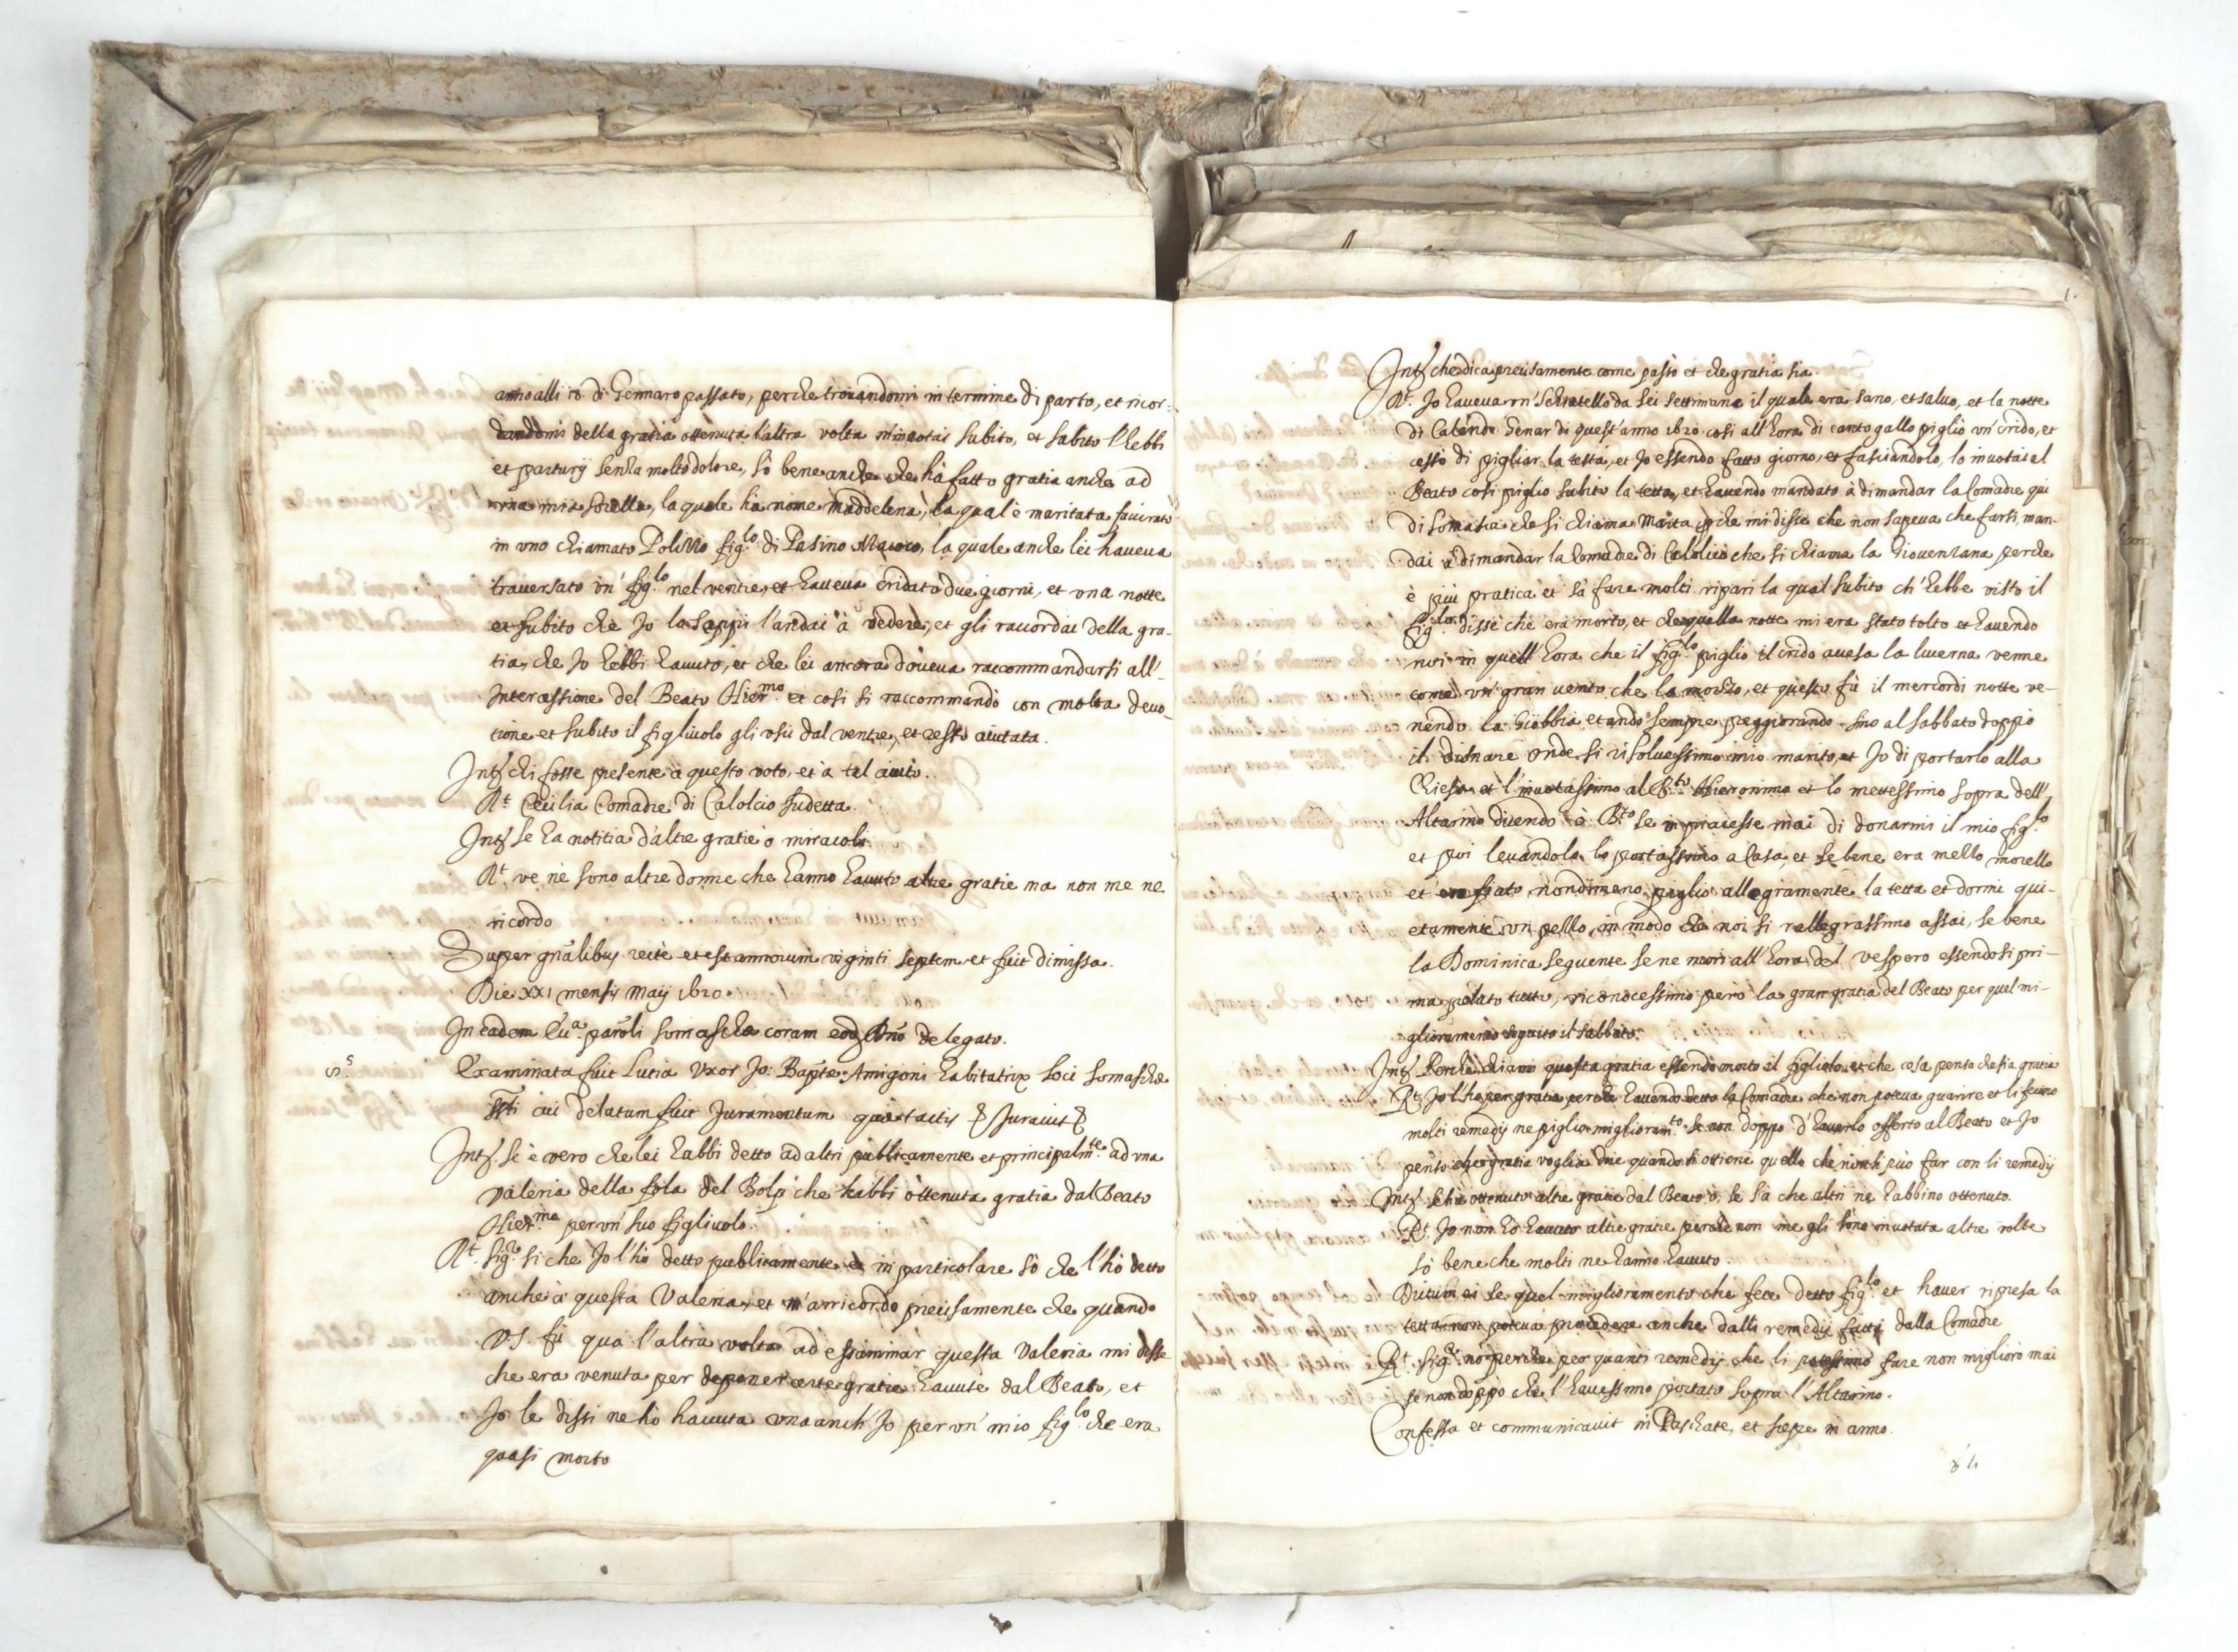 anno alli 10. di Gennaro passato, perche trovandomi in termine di parto, et ricor-
dandomi della gratia ottenuta l'altra volta m'invotai subito, et subito l'hebbi
et parturij senza molto dolore, sò bene anche che hà fatto gratia anche ad
una mia sorella, la quale ha nome Maddelena, la qual è maritata
in uno chiamato fig.lo di Pasino la quale anche lei haveva
traversato un' fig.lo nel ventre, et haveva cridato due giorni, et una notte
et subito che Jo la seppi l'andai à vedere, et gli raccordai della gra-
tia, che Jo hebbi havuto, et che lei ancora doveva raccommandarsi all'
Intercessione del Beato Hier.mo et cosi si raccommandò con molta devo-
tione et subito il figliuolo gli usii dal ventre, et restò aiutata.
Int.s chi fosse presente à questo voto, et à tal aiuto.
R.t Cecilia Comadre di Calolcio sudetta.
Int.s se ha notitia d'altre gratie ò miracoli.
R.t ve ne sono altre donne che hanno havuto altre gratie ma non me ne
ricordo
Super gn̄alibus recte et est annorum viginti septem et fuit dimissa.
Die xxi mensis Maij 1620.
In eadem Ecc.a par̄oli Somaschæ coram eod. Dn̄o Delegato.
S.s Examinata fuit Lutia Uxor Jo: Baptæ Amigoni habitatrix loci Somaschæ
cui delatum fuit Juramentum tactis & Juravit &
Int.s se è vero che lei habbi detto ad altri publicamente et principalm.te ad una
Valeria della fola del Bolp che habbi ottenuta gratia dal Beato
Hier.mo per un' suo figliuolo.
R.t Sig.r si che Jo l'hò detto publicamente et in particolare sò che l'hò detto
anche à questa Valeria, et m'arricordo precisamente che quando
V.S. fù qua l'altra volta ad essaminar questa Valeria mi disse
che era venuta per deponer certe gratie havute dal Beato, et
Jo le dissi ne hò havuta una anch'Jo per un' mio fig.lo che era
quasi morto
1.
Int.s che dica precisamente come passò et che gratia sia.
R.t Jo haveva un' Schiatello da sei settimane il quale era sano, et salvo, et la notte
di Calende Genar di quest'anno 1620 cosi all'hora di canto gallo pigliò un' crido, et
cessò di pigliar la tetta, et Jo essendo fatto giorno, et fasciandolo, lo invotai al
Beato cosi pigliò subito la tetta, et havendo mandato à dimandar la Comadre qui
di Somasca che si chiama Marta, per che mi disse che non sapeva che farsi, man-
dai à dimandar la Comadre di Calolcio che si chiama la Gioventana perche
è più pratica et sà fare molti ripari la qual subito ch'hebbe visto il
fig.lo disse che era morto, et che quella notte mi era stato tolto et havendo
noi in quell'hora che il fig.lo pigliò il crido avesa la lucerna venne
come un' gran vento che la morzò, et questo fù il mercordi notte ve-
nendo la Giobbia et andò sempre peggiorando sino al sabbato doppò
il disnare onde si risolvessimo mio marito, et Jo di portarlo alla
Chiesa et l'invotassimo al B.to Hieronimo et lo mettessimo sopra dell'
Altarino dicendo ò B.to se vi piacesse mai di donarmi il mio fig.lo
et poi levandolo lo portassimo a Casa et se bene era mello morello
et nondimeno pigliò allegramente la tetta et dormi qui-
etamente un pezzo, in modo che noi si rallegrassimo assai, se bene
la Dominica seguente se ne morì all'hora del vespero essendosi pri-
ma pelato tutto, riconocessimo però la gran gratia del Beato per quel mi-
glioramento seguito il sabbato.
Int.s Perche chiami questa gratia essendo morto il figliolo et che cosa pensa che sia gratia
R.t Jo l'hò per gratia perche havendo detto la Comadre che non poteva guarire et li fecimo
molti remedij ne pigliò miglioram.to se non doppò d'haverlo offerto al Beato et Jo
penso che gratia voglia dire quando si ottiene quello che non si può far con li remedij
Int.s se hà ottenuto altre gratie dal Beato ò, se sà che altri ne habbino ottenuto.
R.t Jo non hò havuto altre gratie perche non me gli sono invotata altre volte
sò bene che molti ne hanno havuto.
Dictum ei se quel miglioramento che fece detto fig.lo et haver ripresa la
tetta non poteva procedere anche dalli remedij fatti dalla Comadre
R.t Sig.r nò perche per quanti remedij che li potessimo fare non migliorò mai
se non doppò che l'havessimo portato sopra l'Altarino.
Confessa et communicavit in Paschate, et sæpe in anno.